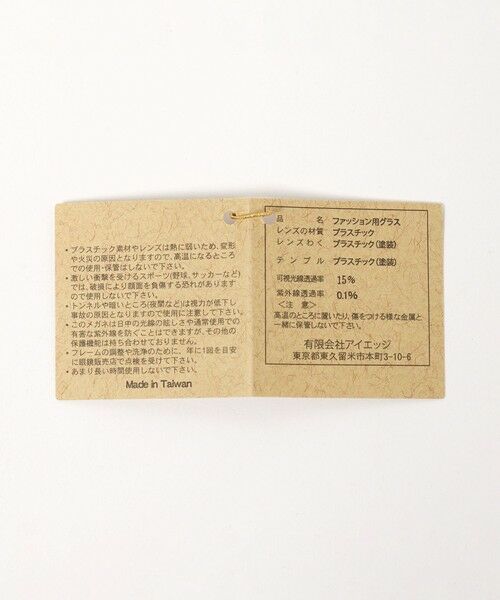 ・プラスチック素材やレンズは熱に弱いため、変形
や火災の原因となりますので、高温になるところ
での使用・保管はしないで下さい。
・激しい衝撃を受けるスポーツ(野球、サッカーなど)
では、破損により顔面を負傷する恐れがあります
ので使用しないで下さい。
・トンネルや暗いところ(夜間など)は視力が低下し
事故の原因となりますので使用に注意して下さい。
・このメガネは日中の光線の眩しさや通常使用での
有害な紫外線を防ぐことはできますが、その他の
保護機能は持ち合わせておりません。
・フレームの調整や洗浄のために、年に1回を目安
に眼鏡販売店で点検を受けて下さい。
・あまり長い時間使用しないで下さい。
Made in Taiwan
品 名 ファッション用グラス
レンズの材質 プラスチック
レンズわく プラスチック(塗装)
テンプル プラスチック(塗装)
可視光線透過率 15%
紫外線透過率 0.1%
<注 意>
高温のところに置いたり、傷をつける様な金属と
一緒に保管しないで下さい。
有限会社アイエッジ
東京都東久留米市本町3-10-6